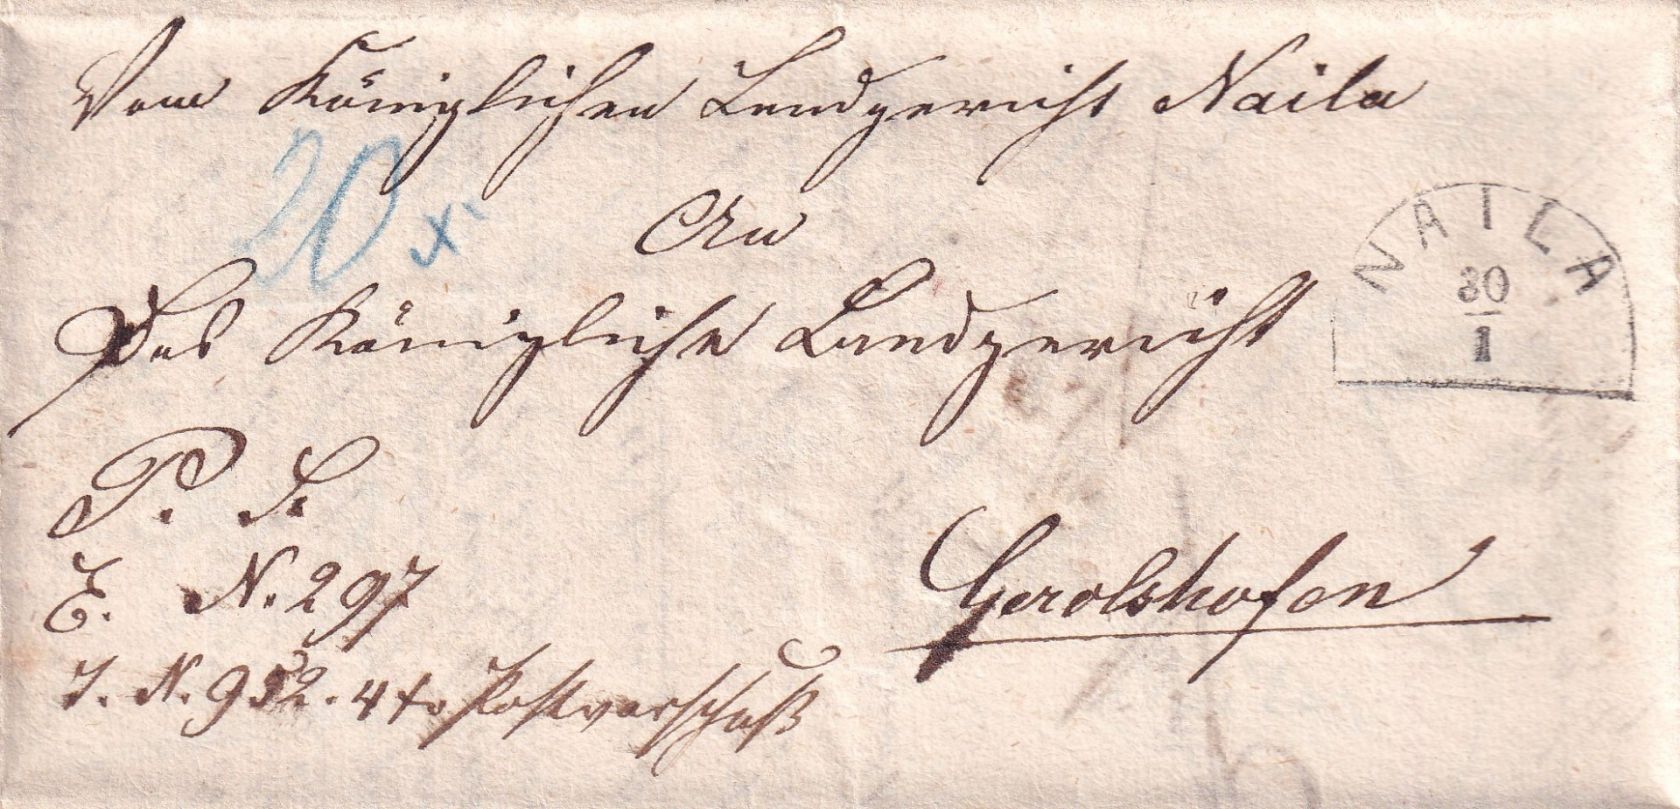 Vom Königlichen Landgericht Naila
20 x
An
Das Königliche Landgericht
NAILA
30
1
P. S.
E. N. 297
Gerolshofen
J. N. 952. 4 fr Postvorschuß